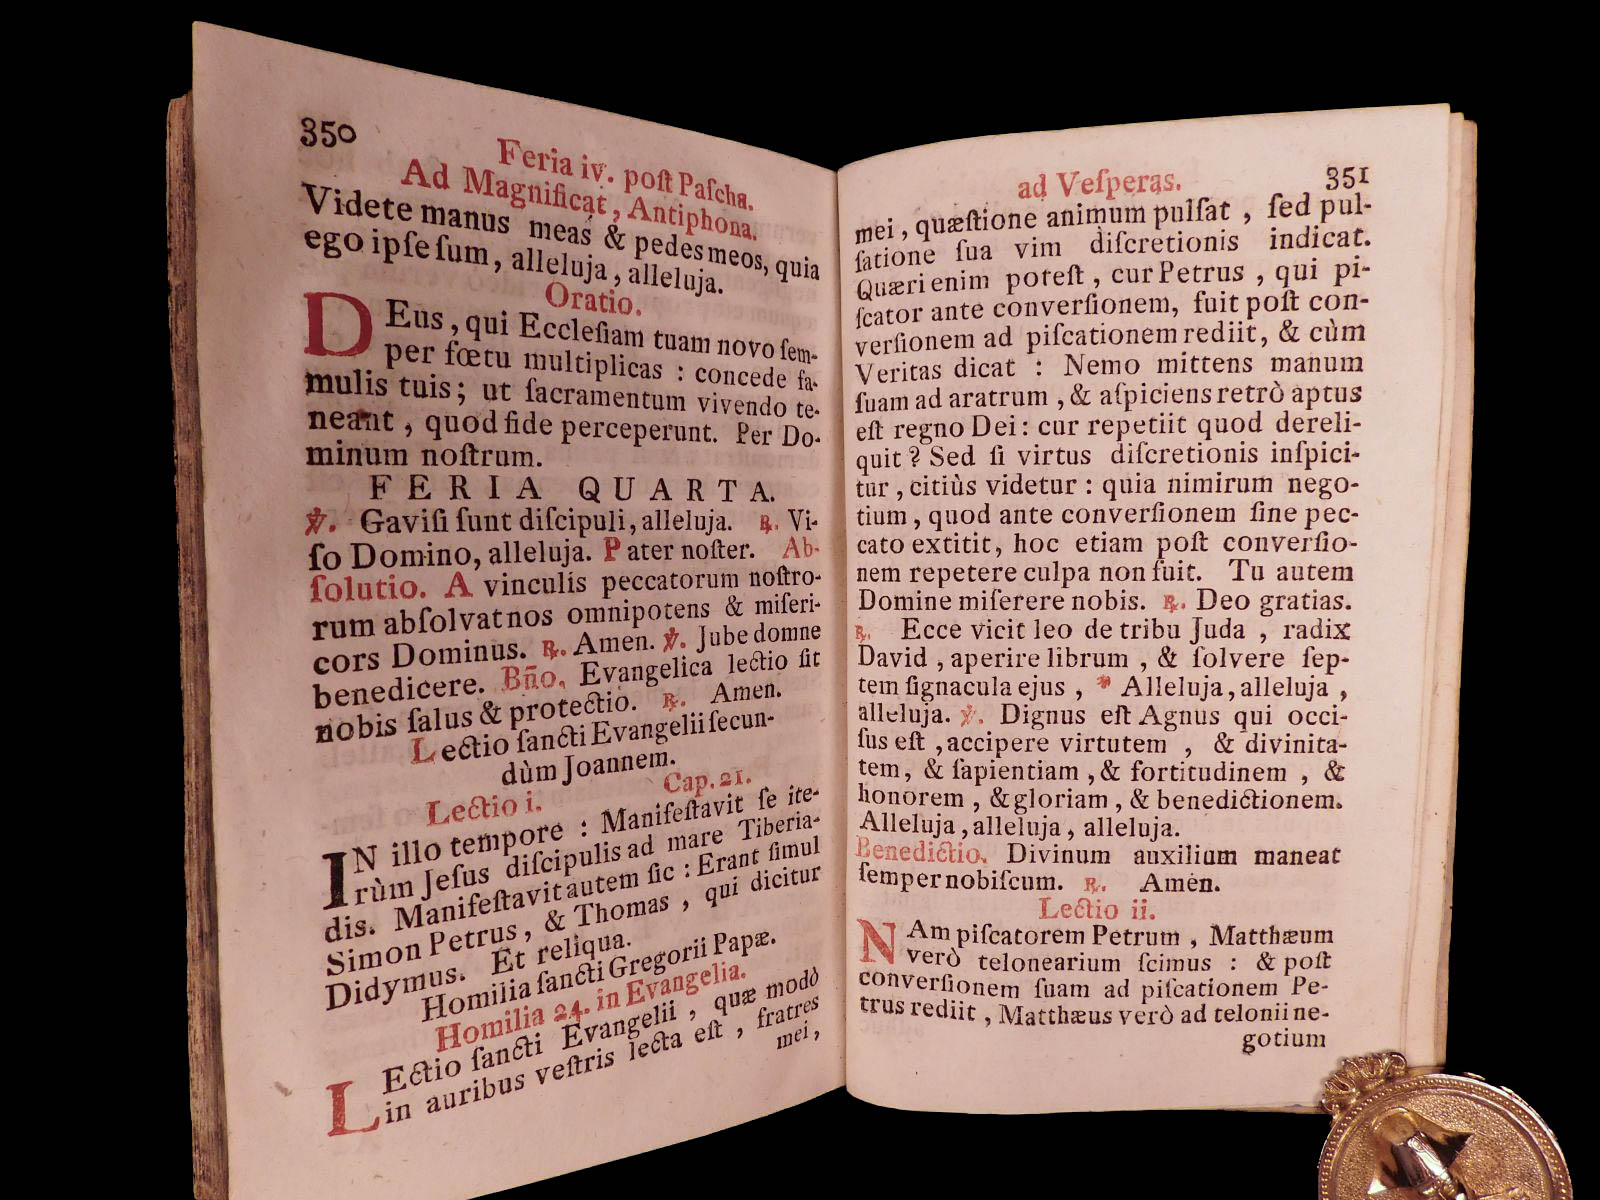 350
Feria iv. poſt Paſcha.
Ad Magnificat, Antiphona.
Videte manus meas & pedes meos, quia
ego ipſe ſum, alleluja, alleluja.
Oratio.
DEus, qui Eccleſiam tuam novo ſem-
per fœtu multiplicas : concede fa-
mulis tuis; ut ſacramentum vivendo te-
neant, quod fide perceperunt. Per Do-
minum noſtrum.
FERIA QUARTA.
℣. Gaviſi ſunt diſcipuli, alleluja. ℟. Vi-
ſo Domino, alleluja. Pater noſter. Ab-
ſolutio. A vinculis peccatorum noſtro-
rum abſolvat nos omnipotens & miſeri-
cors Dominus. ℟. Amen. ℣. Jube domne
benedicere. Bño. Evangelica lectio ſit
nobis ſalus & protectio. ℟. Amen.
Lectio ſancti Evangelii ſecun-
dùm Joannem.
Lectio i. Cap. 21.
IN illo tempore : Manifeſtavit ſe ite-
rùm Jeſus diſcipulis ad mare Tiberia-
dis. Manifeſtavit autem ſic : Erant ſimul
Simon Petrus, & Thomas, qui dicitur
Didymus. Et reliqua.
Homilia ſancti Gregorii Papæ.
Homilia 24. in Evangelia.
LEctio ſancti Evangelii, quæ modò
in auribus veſtris lecta eſt, fratres
mei,
ad Veſperas. 351
mei, quæſtione animum pulſat, ſed pul-
ſatione ſua vim diſcretionis indicat.
Quæri enim poteſt, cur Petrus, qui pi-
ſcator ante converſionem, fuit poſt con-
verſionem ad piſcationem rediit, & cùm
Veritas dicat : Nemo mittens manum
ſuam ad aratrum, & aſpiciens retrò aptus
eſt regno Dei: cur repetiit quod dereli-
quit? Sed ſi virtus diſcretionis inſpici-
tur, citiùs videtur : quia nimirum nego-
tium, quod ante converſionem ſine pec-
cato extitit, hoc etiam poſt converſio-
nem repetere culpa non fuit. Tu autem
Domine miſerere nobis. ℟. Deo gratias.
℟. Ecce vicit leo de tribu Juda, radix
David, aperire librum, & ſolvere ſep-
tem ſignacula ejus, * Alleluja, alleluja,
alleluja. ℣. Dignus eſt Agnus qui occi-
ſus eſt, accipere virtutem, & divinita-
tem, & ſapientiam, & fortitudinem, &
honorem, & gloriam, & benedictionem.
Alleluja, alleluja, alleluja.
Benedictio. Divinum auxilium maneat
ſemper nobiſcum. ℟. Amen.
Lectio ii.
NAm piſcatorem Petrum, Matthæum
verò telonearium ſcimus : & poſt
converſionem ſuam ad piſcationem Pe-
trus rediit, Matthæus verò ad telonii ne-
gotium